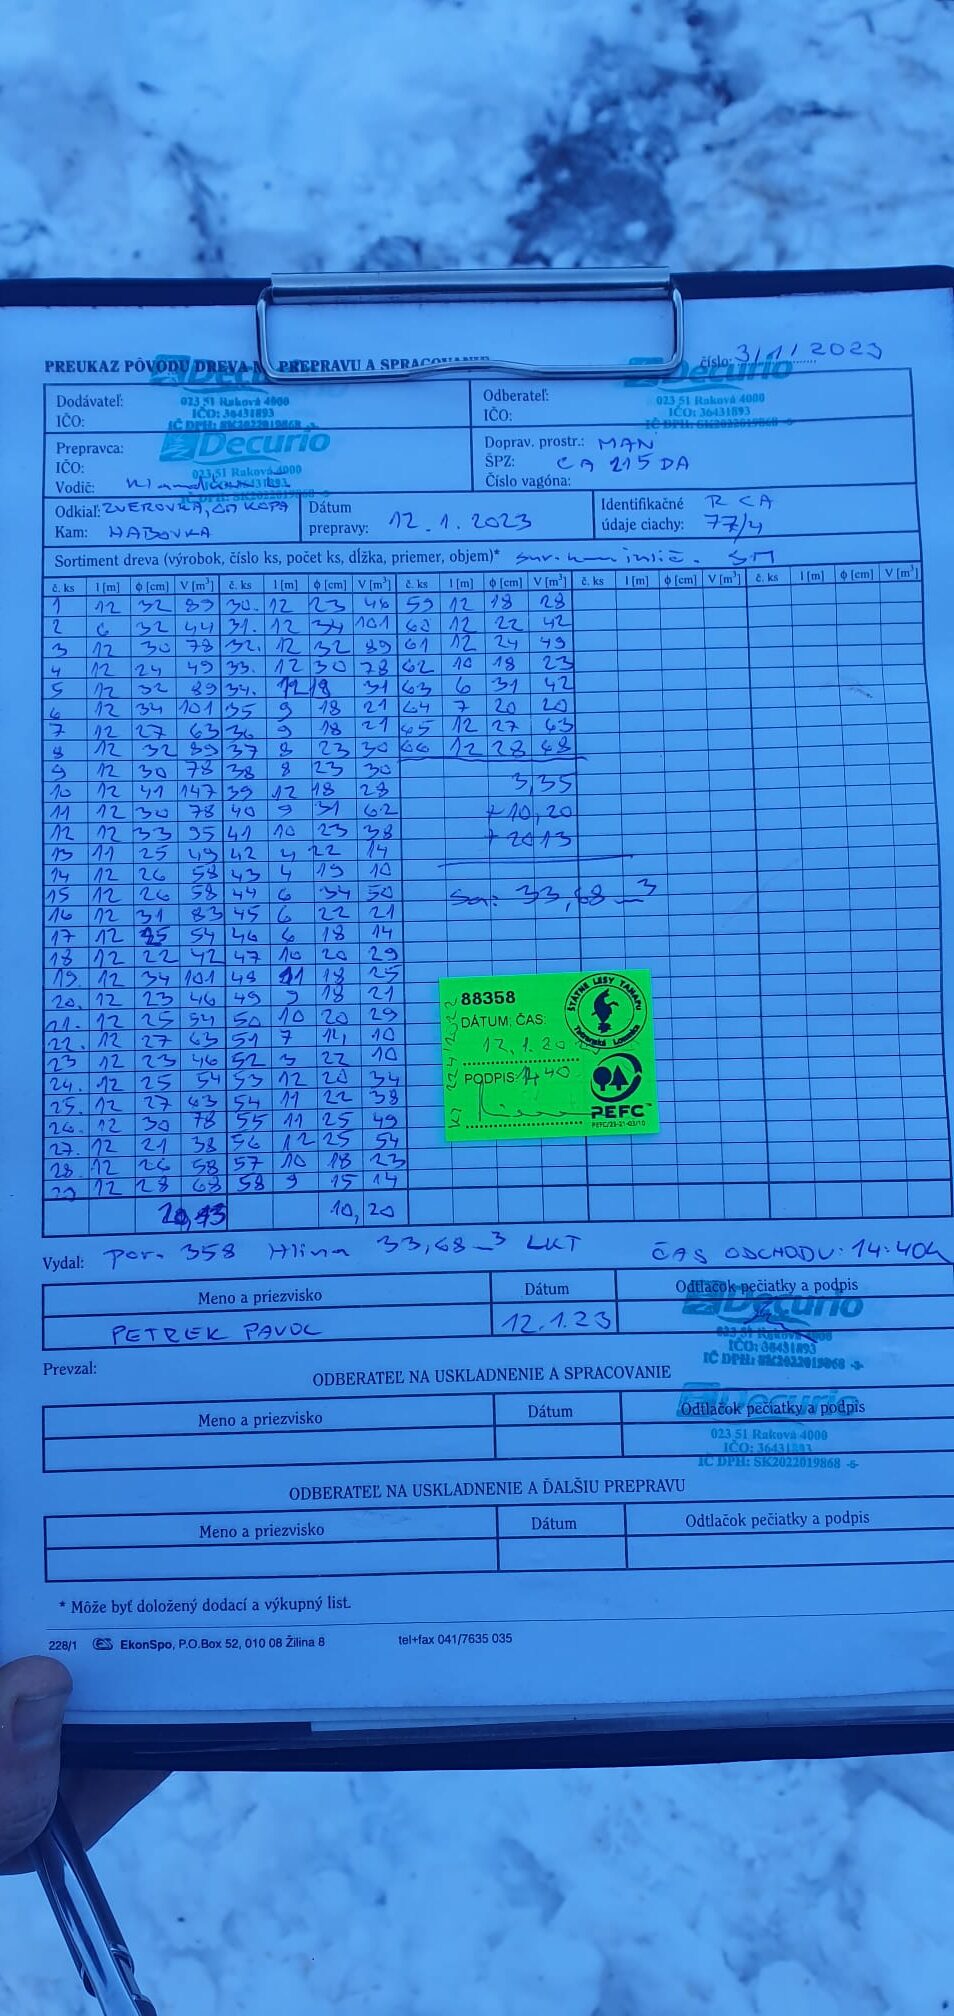 PREUKAZ PÔVODU DREVA NA PREPRAVU A SPRACOVANIE číslo: 3/1/2023
Decurio
023 51 Raková 4000
IČO: 36431893
IČ DPH: SK2022019868 -6-
Decurio
023 51 Raková 4000
IČO: 36431893
IČ DPH: SK2022019868 -6-
Dodávateľ:
IČO:
Odberateľ:
IČO:
Decurio
023 51 Raková 4000
Prepravca:
IČO:
Vodič:
Doprav. prostr.: MAN
ŠPZ: CA 215 DA
Číslo vagóna:
Odkiaľ: ZVEROVKA,
Kam: HABOVKA
Dátum prepravy: 12.1.2023
Identifikačné údaje ciachy: R CA 77/4
Sortiment dreva (výrobok, číslo ks, počet ks, dĺžka, priemer, objem)* SM
č. ks l [m] ϕ [cm] V [m³] č. ks l [m] ϕ [cm] V [m³] č. ks l [m] ϕ [cm] V [m³] č. ks l [m] ϕ [cm] V [m³] č. ks l [m] ϕ [cm] V [m³]
1 12 32 89 30. 12 23 46 59 12 18 28
2 6 32 44 31. 12 34 101 60 12 22 42
3 12 30 78 32. 12 32 89 61 12 24 49
4 12 24 49 33. 12 30 78 62 10 18 23
5 12 32 89 34. 12 19 31 63 6 31 42
6 12 34 101 35 9 18 21 64 7 20 20
7 12 27 63 36 9 18 21 65 12 27 63
8 12 32 89 37 8 23 30 66 12 28 68
9 12 30 78 38 8 23 30
10 12 41 147 39 12 18 28 3,35
11 12 30 78 40 9 31 62 + 10,20
12 12 33 95 41 10 23 38 + 20 13
13 11 25 49 42 4 22 14
14 12 26 58 43 4 19 10
15 12 26 58 44 6 34 50 Sa: 33,68 m3
16 12 31 83 45 6 22 21
17 12 25 54 46 6 18 14
18 12 22 42 47 10 20 29
19. 12 34 101 48 11 18 25
20. 12 23 46 49 9 18 21
21. 12 25 54 50 10 20 29
22. 12 27 63 51 7 14 10
23 12 23 46 52 3 22 10
24. 12 25 54 53 12 20 34
25. 12 27 63 54 11 22 38
26. 12 30 78 55 11 25 49
27. 12 21 38 56 12 25 54
28. 12 26 58 57 10 18 23
29 12 28 68 58 9 15 14
20,13 10,20
88358
ŠTÁTNE LESY TANAPU
Tatranská Lomnica
DÁTUM, ČAS:
12.1.20
PODPIS: 14 40
PEFC™
PEFC/23-21-03/10
Vydal: por. 358 Hlina 33,68 m3 LKT ČAS ODCHODU: 14:40h
Meno a priezvisko Dátum Odtlačok pečiatky a podpis
PETREK PAVOL 12.1.23
Decurio
023 51 Raková 4000
IČO: 36431893
IČ DPH: SK2022019868 -3-
Prevzal:
ODBERATEĽ NA USKLADNENIE A SPRACOVANIE
Meno a priezvisko Dátum Odtlačok pečiatky a podpis
Decurio
023 51 Raková 4000
IČO: 36431893
IČ DPH: SK2022019868 -6-
ODBERATEĽ NA USKLADNENIE A ĎALŠIU PREPRAVU
Meno a priezvisko Dátum Odtlačok pečiatky a podpis
* Môže byť doložený dodací a výkupný list.
228/1 ES EkonSpo, P.O.Box 52, 010 08 Žilina 8 tel+fax 041/7635 035